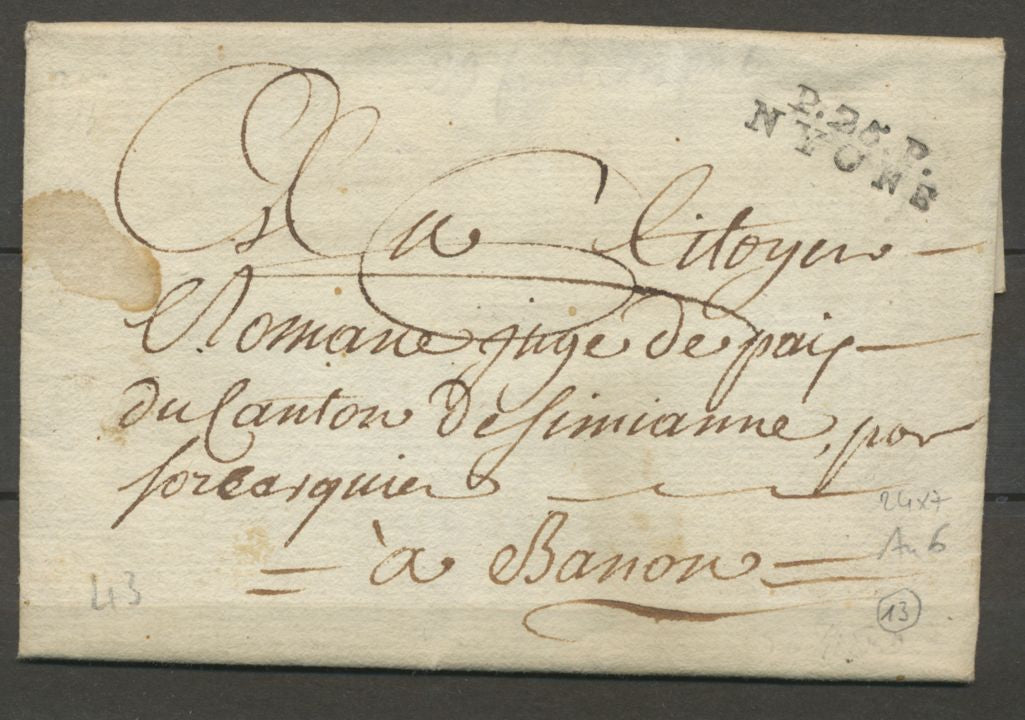 P.25.P.
NYONS
Au Citoyen
Romane juge de paix
du Canton de Simianne, par
forcarquier
à Banon
24x7
An 6
43
13